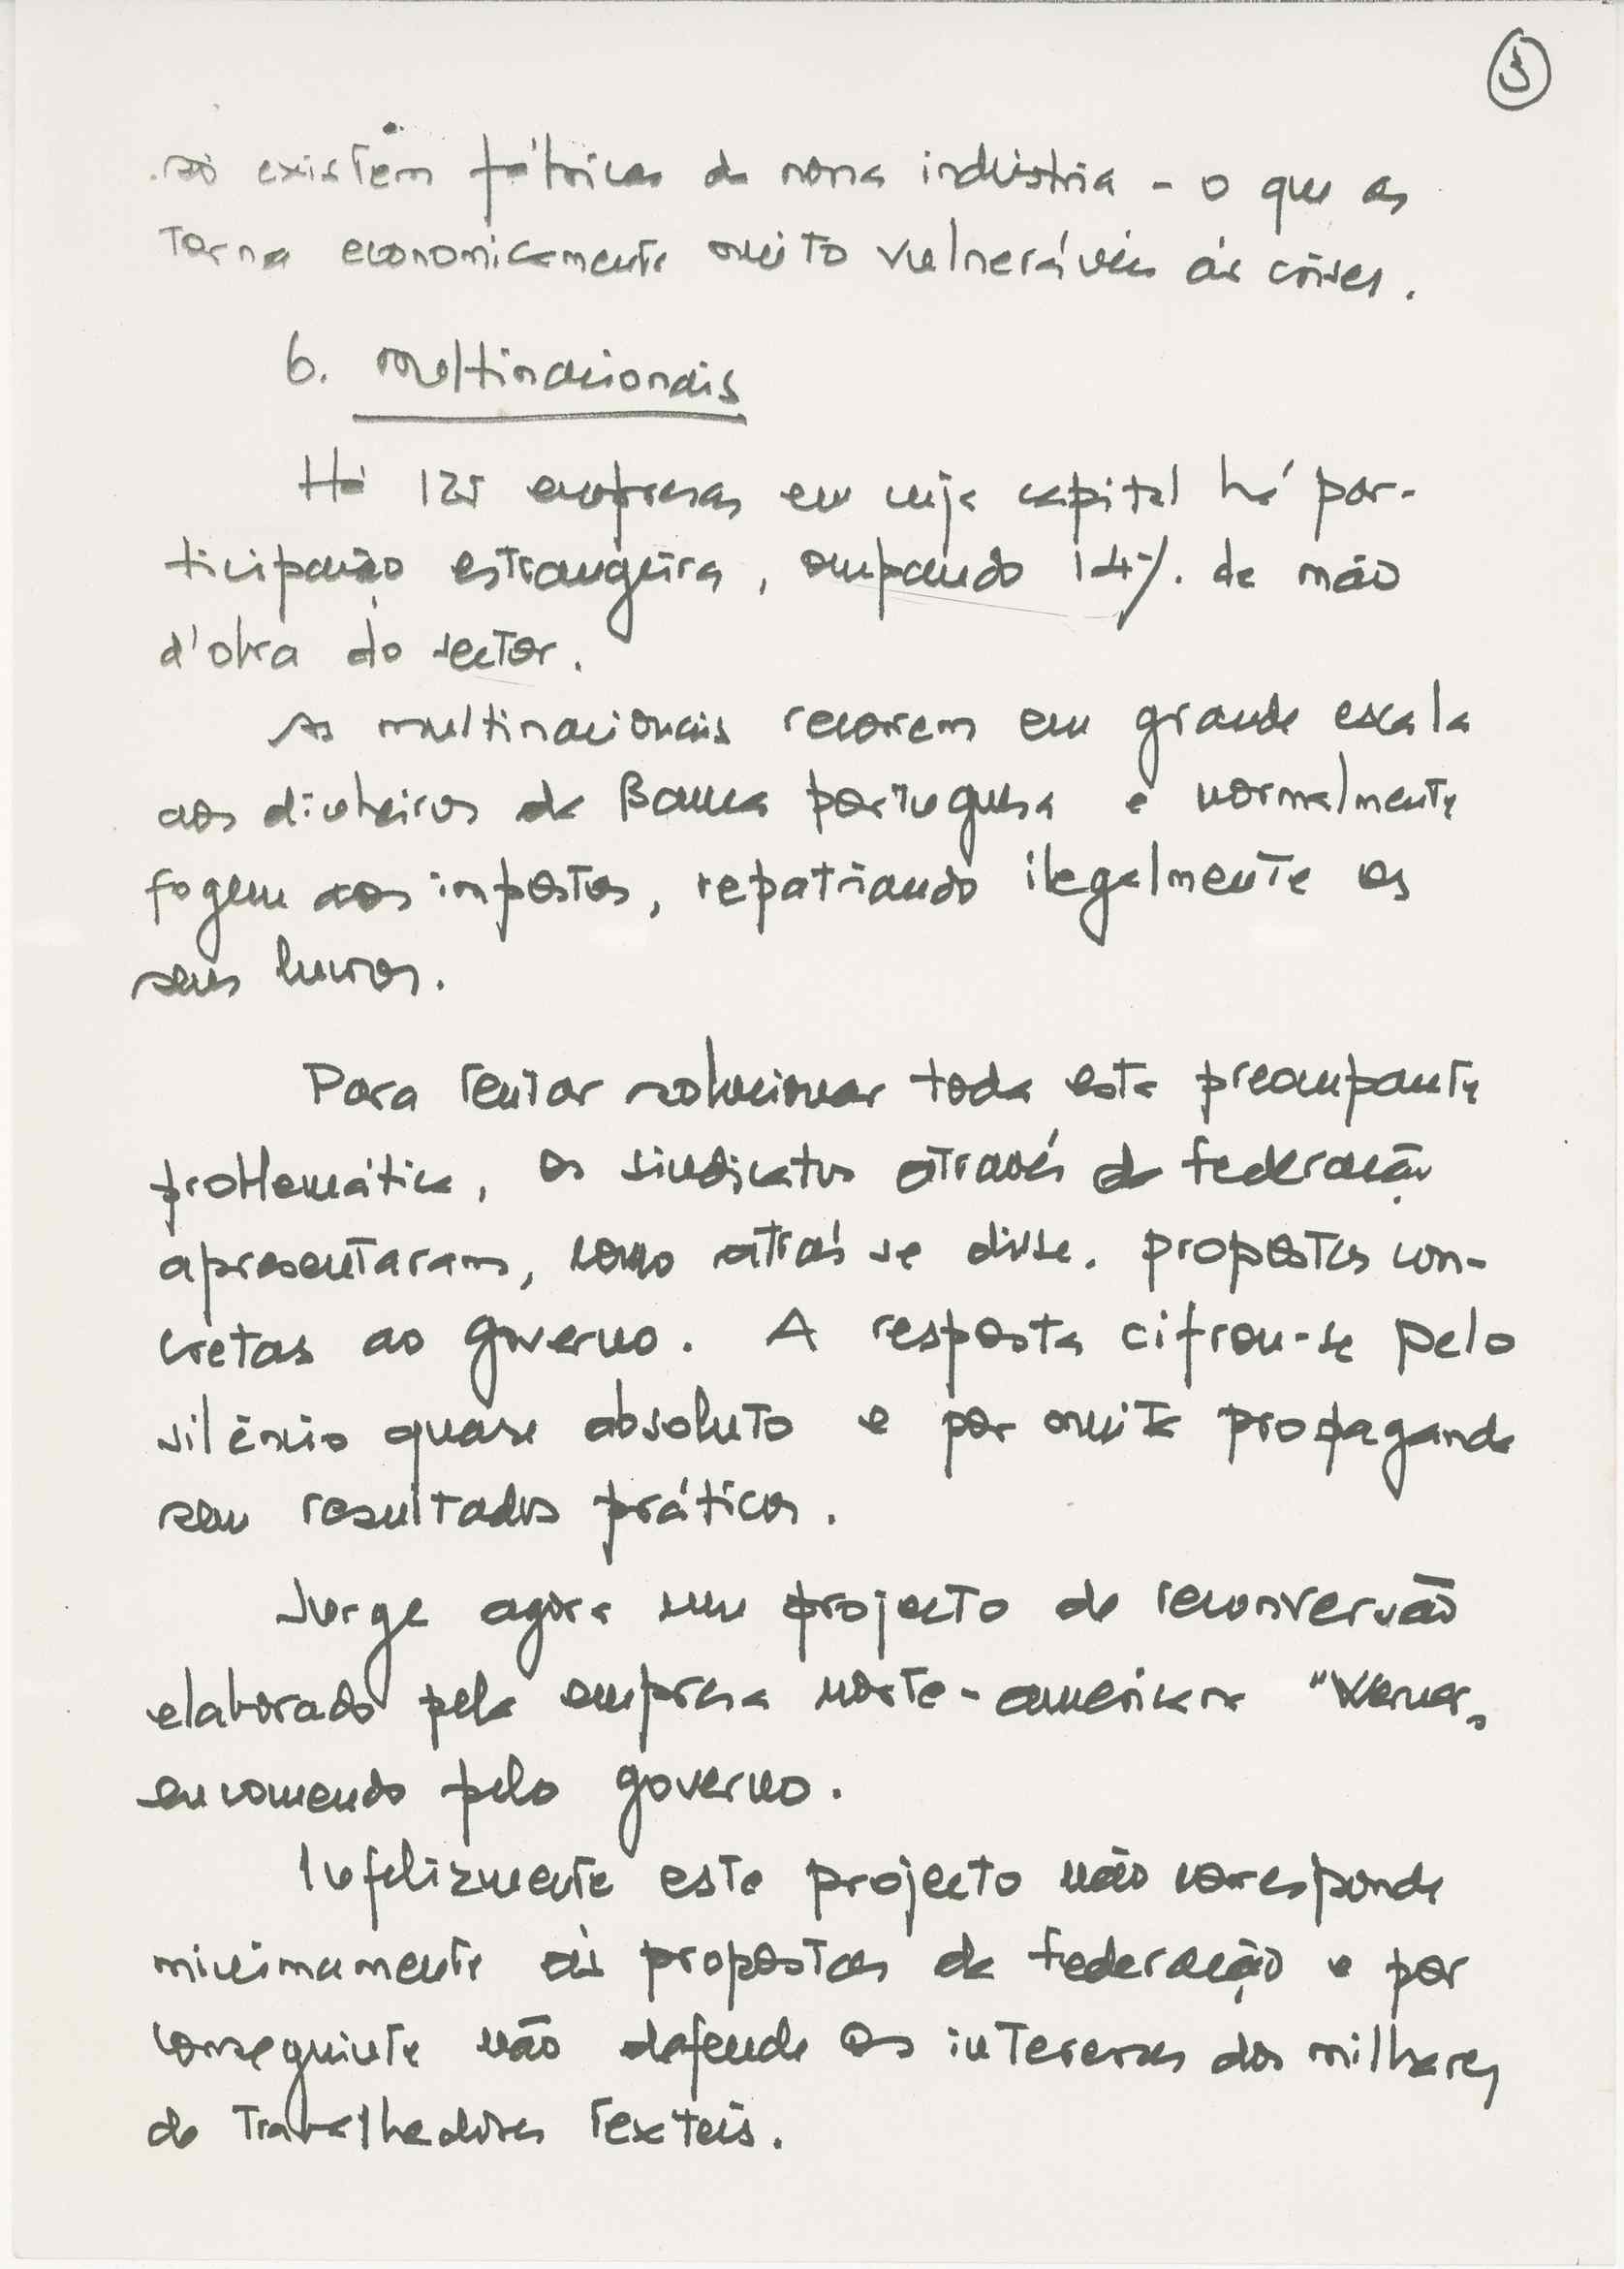 3
só existem fábricas da nossa indústria - o que as
torna economicamente muito vulneráveis às crises.
6. Multinacionais
Há 125 empresas em cuja capital há par-
ticipação estrangeira, ocupando 14% da mão
d'obra do sector.
As multinacionais recorrem em grande escala
aos dinheiros da Banca portuguesa e normalmente
fogem aos impostos, repatriando ilegalmente os
seus lucros.
Para tentar solucionar toda esta preocupante
problemática, os sindicatos através da Federação
apresentaram, como atrás se disse, propostas con-
cretas ao governo. A resposta cifrou-se pelo
silêncio quase absoluto e por muita propaganda
sem resultados práticos.
Surge agora um projecto de reconversão
elaborado pela empresa norte-americana "Werner"
encomendo pelo governo.
Infelizmente este projecto não corresponde
minimamente às propostas da Federação e por
conseguinte não defende os interesses dos milhares
de Trabalhadores Texteis.